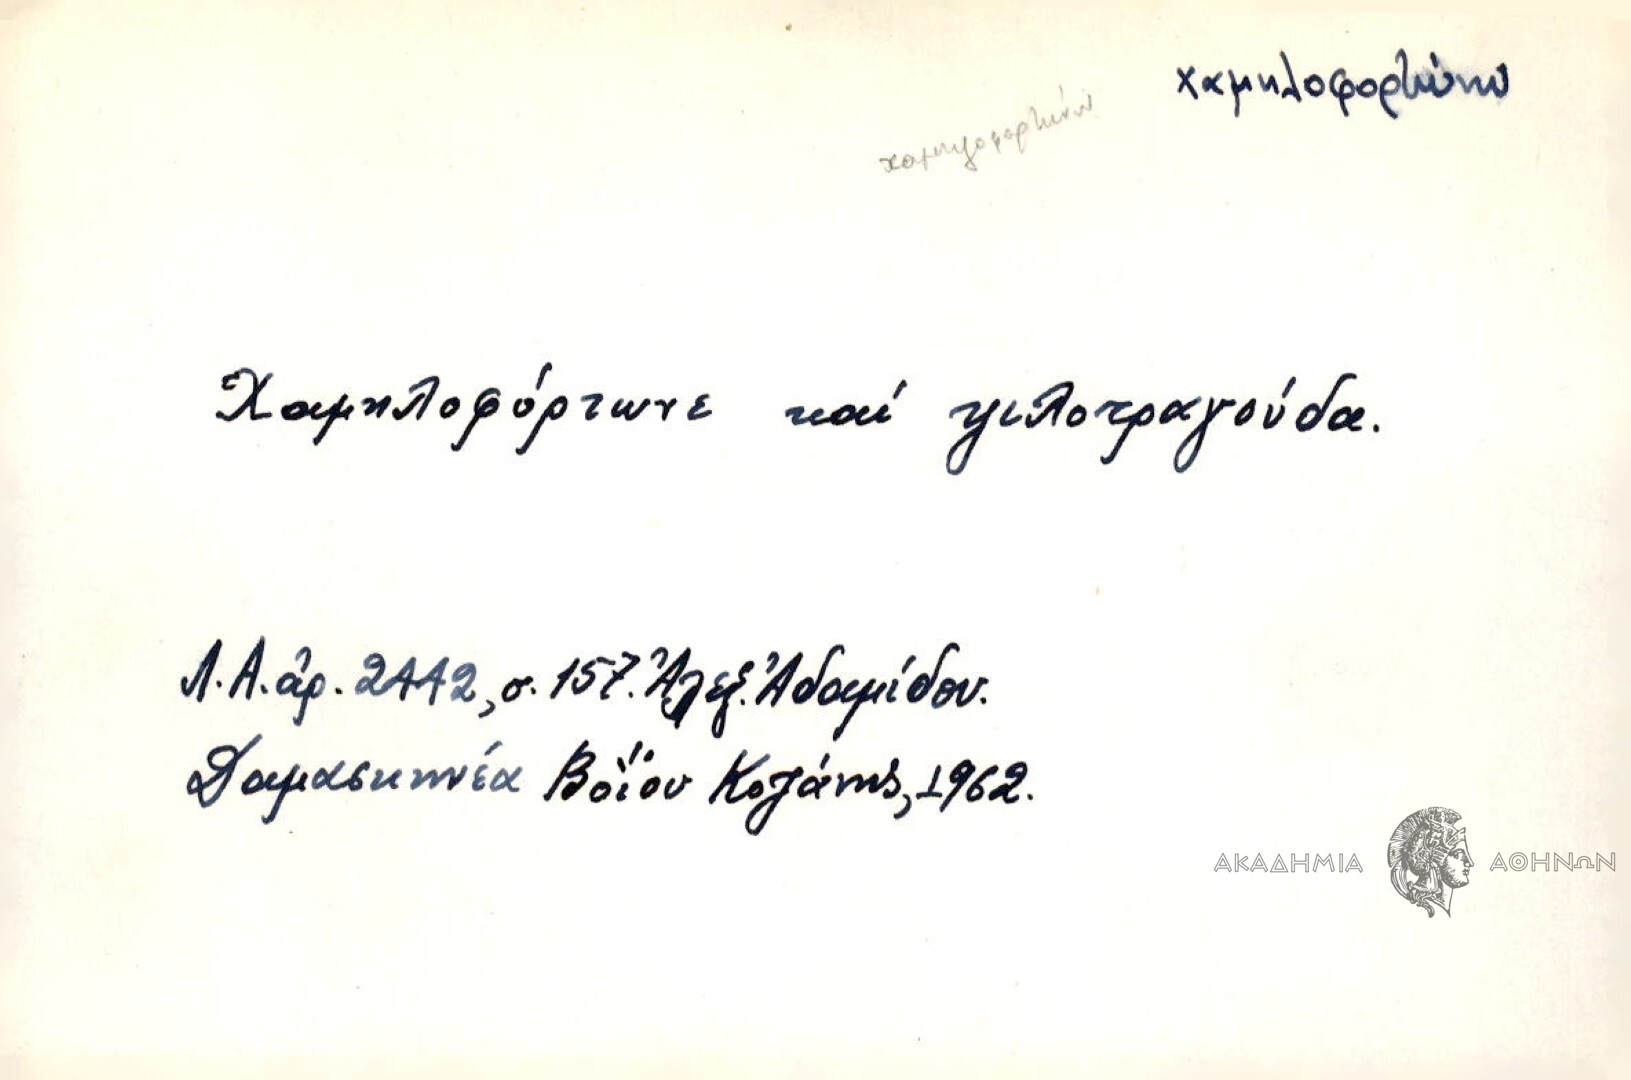 χαμηλοφορτώνω
χαμηλοφορτώνω
Χαμηλοφόρτωνε καί ψιλοτραγούδα.
Λ.Α. ἀρ. 2442, σ. 157. Ἀλεξ. Ἀδαμίδου.
Δαμασκηνέα Βοΐου Κοζάνης, 1962.
ΑΚΑΔΗΜΙΑ ΑΘΗΝΩΝ